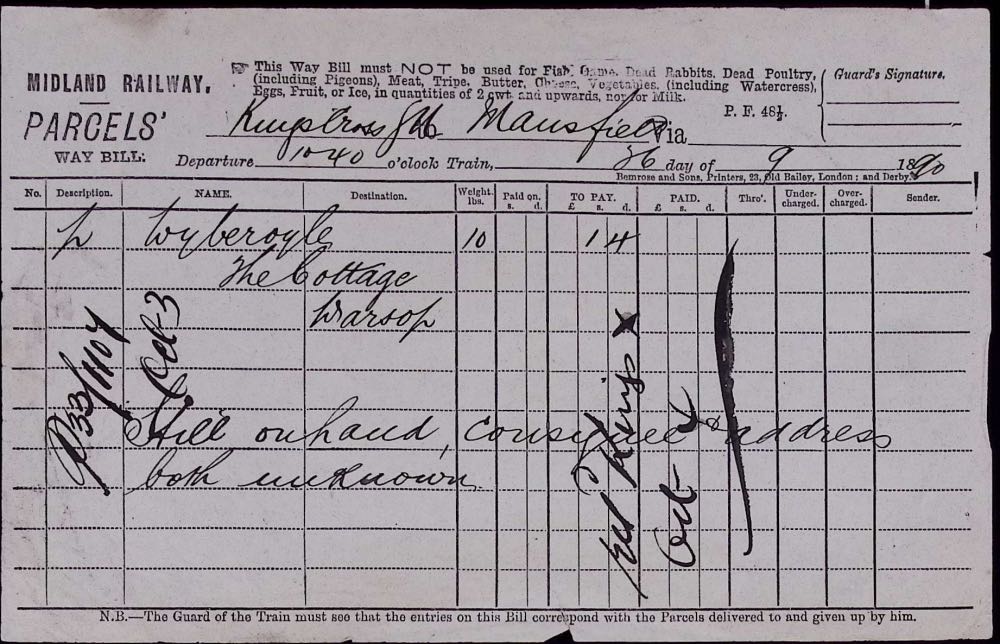 MIDLAND RAILWAY.
PARCELS'
WAY BILL:
☞ This Way Bill must NOT be used for Fish, Game, Dead Rabbits, Dead Poultry,
(including Pigeons), Meat, Tripe, Butter, Cheese, Vegetables, (including Watercress),
Eggs, Fruit, or Ice, in quantities of 2 cwt. and upwards, nor for Milk.
Guard's Signature.
P. F. 48½.
Kings Cross to Mansfield Via
Departure 10 40 o'clock Train, 26 day of 9 1890
Bemrose and Sons, Printers, 23, Old Bailey, London; and Derby.
No. Description. NAME. Destination. Weight. lbs. Paid on. s. d. TO PAY. £ s. d. PAID. £ s. d. Thro'. Under-charged. Over-charged. Sender.
p Wyberoyle 10 1 4
The Cottage
Warsop
P33/1104
Oct 3
Still on hand, consignee & address
both unknown
Kings X
Oct 4
N.B.—The Guard of the Train must see that the entries on this Bill correspond with the Parcels delivered to and given up by him.